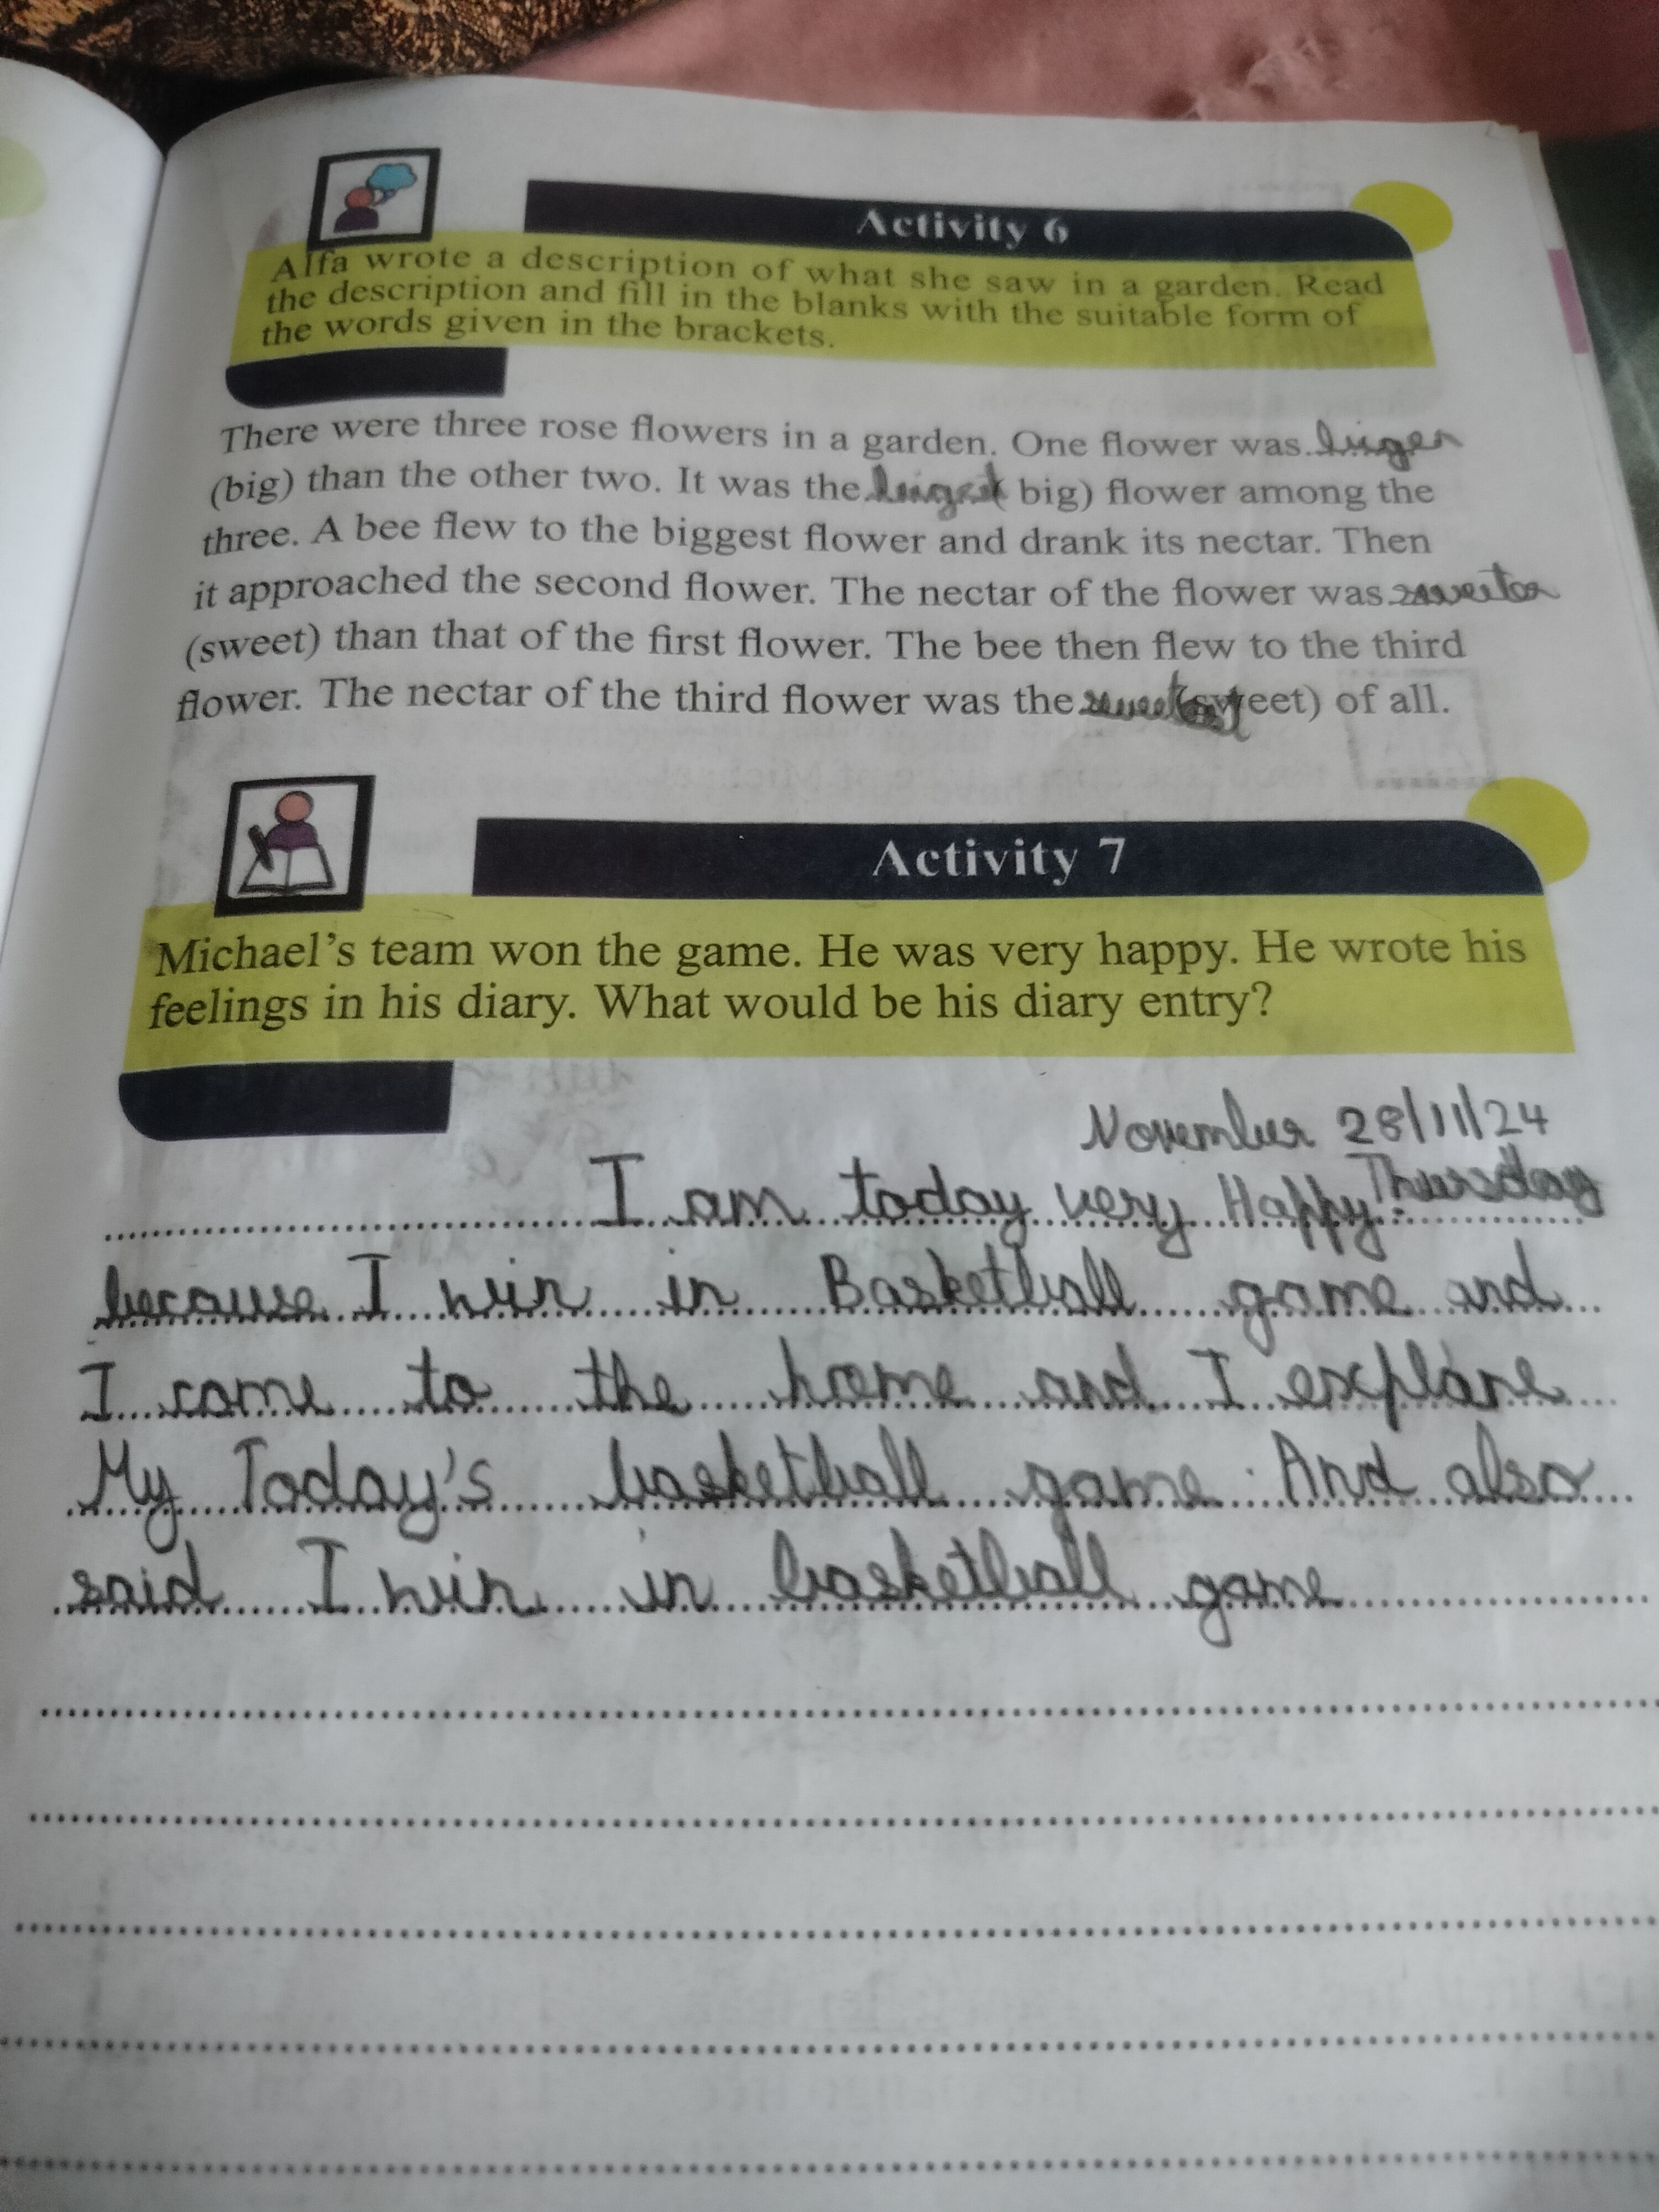 Activity 6
Alfa wrote a description of what she saw in a garden. Read
the description and fill in the blanks with the suitable form of
the words given in the brackets.
There were three rose flowers in a garden. One flower was biger
(big) than the other two. It was the bigest (big) flower among the
three. A bee flew to the biggest flower and drank its nectar. Then
it approached the second flower. The nectar of the flower was sweeter
(sweet) than that of the first flower. The bee then flew to the third
flower. The nectar of the third flower was the (sweet) of all.
Activity 7
Michael's team won the game. He was very happy. He wrote his
feelings in his diary. What would be his diary entry?
November 28/11/24
Thursday
I am today very Happy.
because I win in Basketball game and
I come to the home and I explane
My Today's basketball game. And also
said I win in basketball game